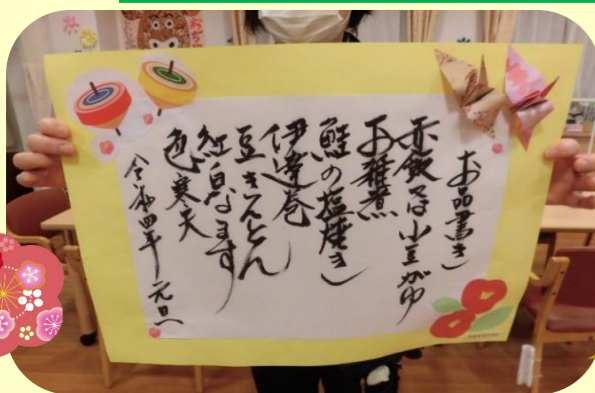 お品書き
赤飯又は小豆がゆ
お雑煮
鮭の塩焼き
伊達巻
豆きんとん
紅白なます
色寒天
令和四年 元旦